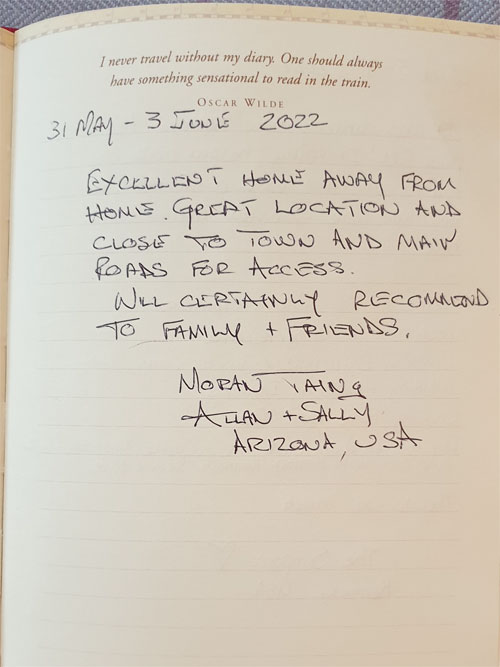 I never travel without my diary. One should always
have something sensational to read in the train.
OSCAR WILDE
31 MAY - 3 JUNE 2022
EXCELLENT HOME AWAY FROM
HOME. GREAT LOCATION AND
CLOSE TO TOWN AND MAIN
ROADS FOR ACCESS.
WILL CERTAINLY RECOMMEND
TO FAMILY + FRIENDS.
MORAN TAING
ALLAN + SALLY
ARIZONA, USA